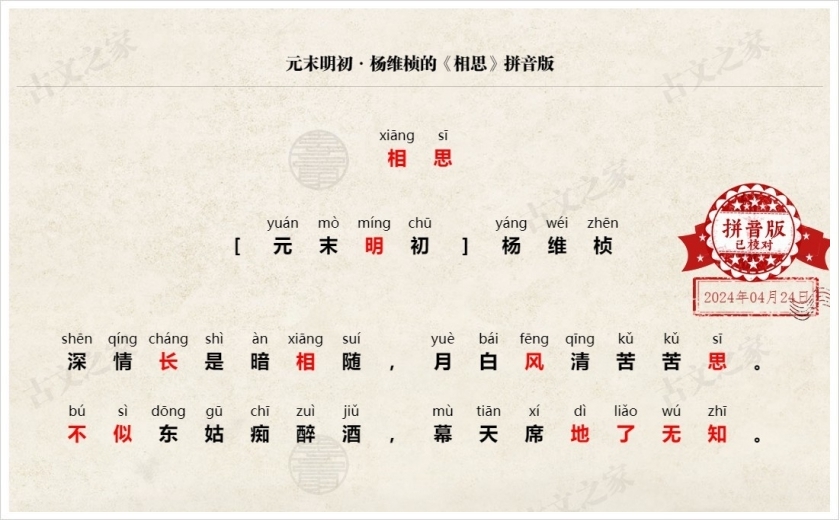 元末明初·杨维桢的《相思》拼音版
xiāng sī
相思
yuán mò míng chū yáng wéi zhēn
[元末明初]杨维桢
拼音版
已校对
2024年04月24日
shēn qíng cháng shì àn xiāng suí yuè bái fēng qīng kǔ kǔ sī
深情长是暗相随，月白风清苦苦思。
bú sì dōng gū chī zuì jiǔ mù tiān xí dì liǎo wú zhī
不似东姑痴醉酒，幕天席地了无知。
古文之家
古文之家
古文之家
古文之家
古文之家
古文之家
古文之家